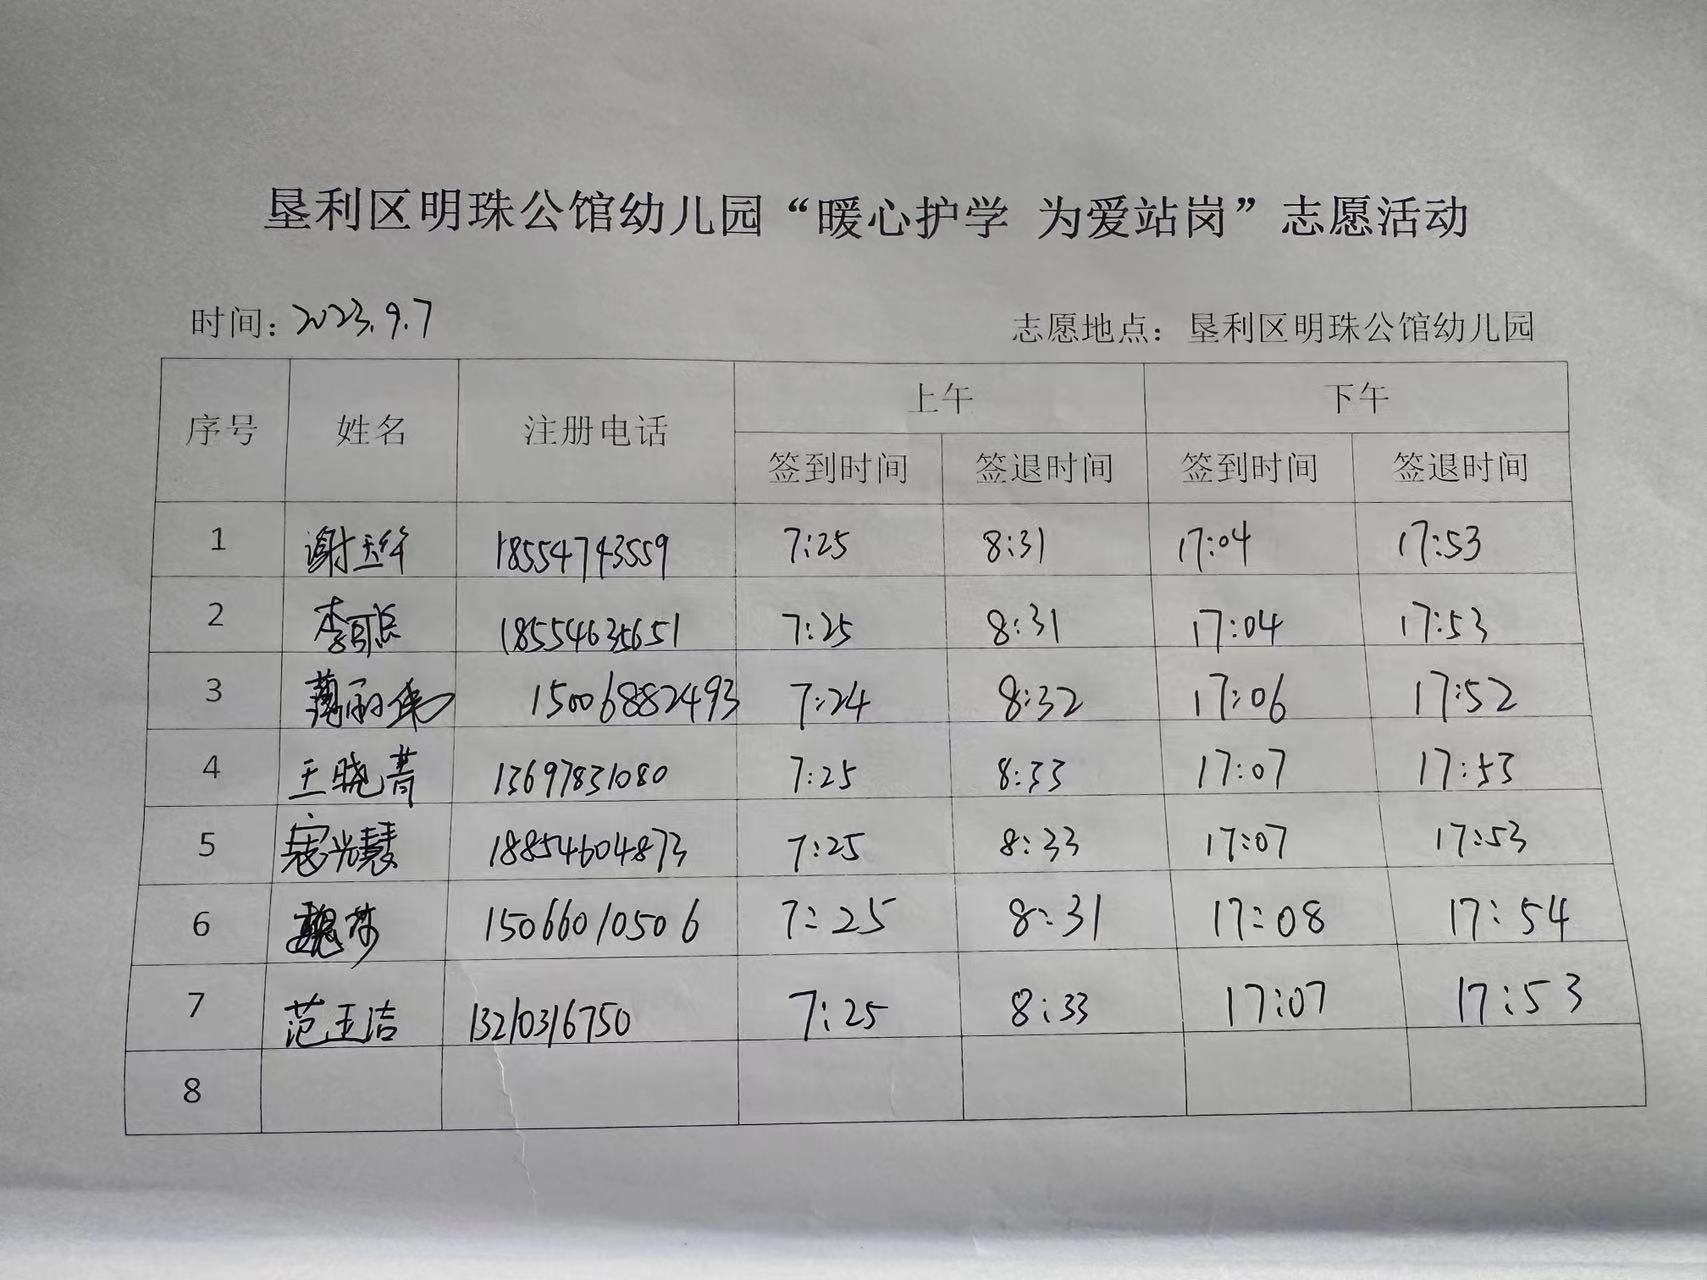 垦利区明珠公馆幼儿园“暖心护学 为爱站岗”志愿活动
时间: 2023.9.7 志愿地点: 垦利区明珠公馆幼儿园
序号 姓名 注册电话 上午 下午
签到时间 签退时间 签到时间 签退时间
1 谢 18554743559 7:25 8:31 17:04 17:53
2 李 18554635651 7:25 8:31 17:04 17:53
3 15006882493 7:24 8:32 17:06 17:52
4 王晓菁 13697831080 7:25 8:33 17:07 17:53
5 慧 18854604873 7:25 8:33 17:07 17:53
6 魏莎 15066010506 7:25 8:31 17:08 17:54
7 范玉洁 13210316750 7:25 8:33 17:07 17:53
8